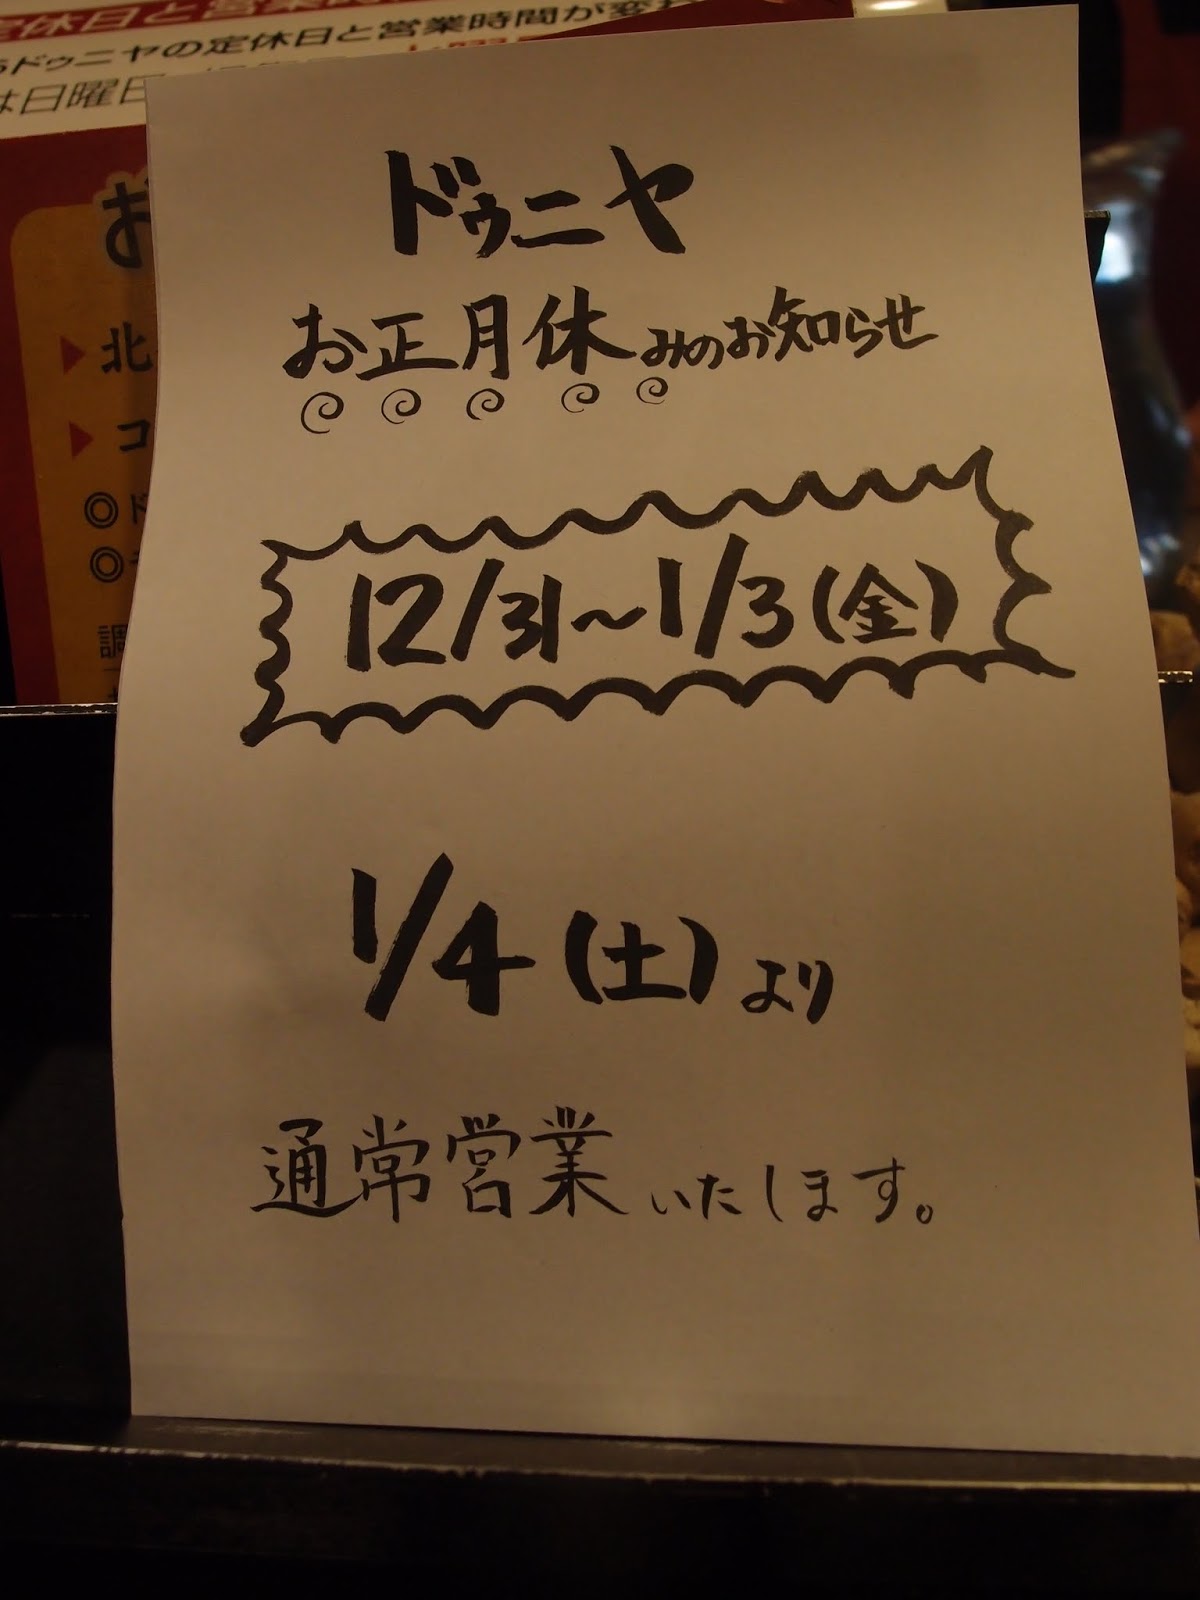 定休日と営業時
ドゥニヤの定休日と営業時間が変
は日曜日
お
北
コ
◎ド
◎
調
ドゥニヤ
お正月休みのお知らせ
12/31～1/3(金)
1/4(土)より
通常営業いたします。